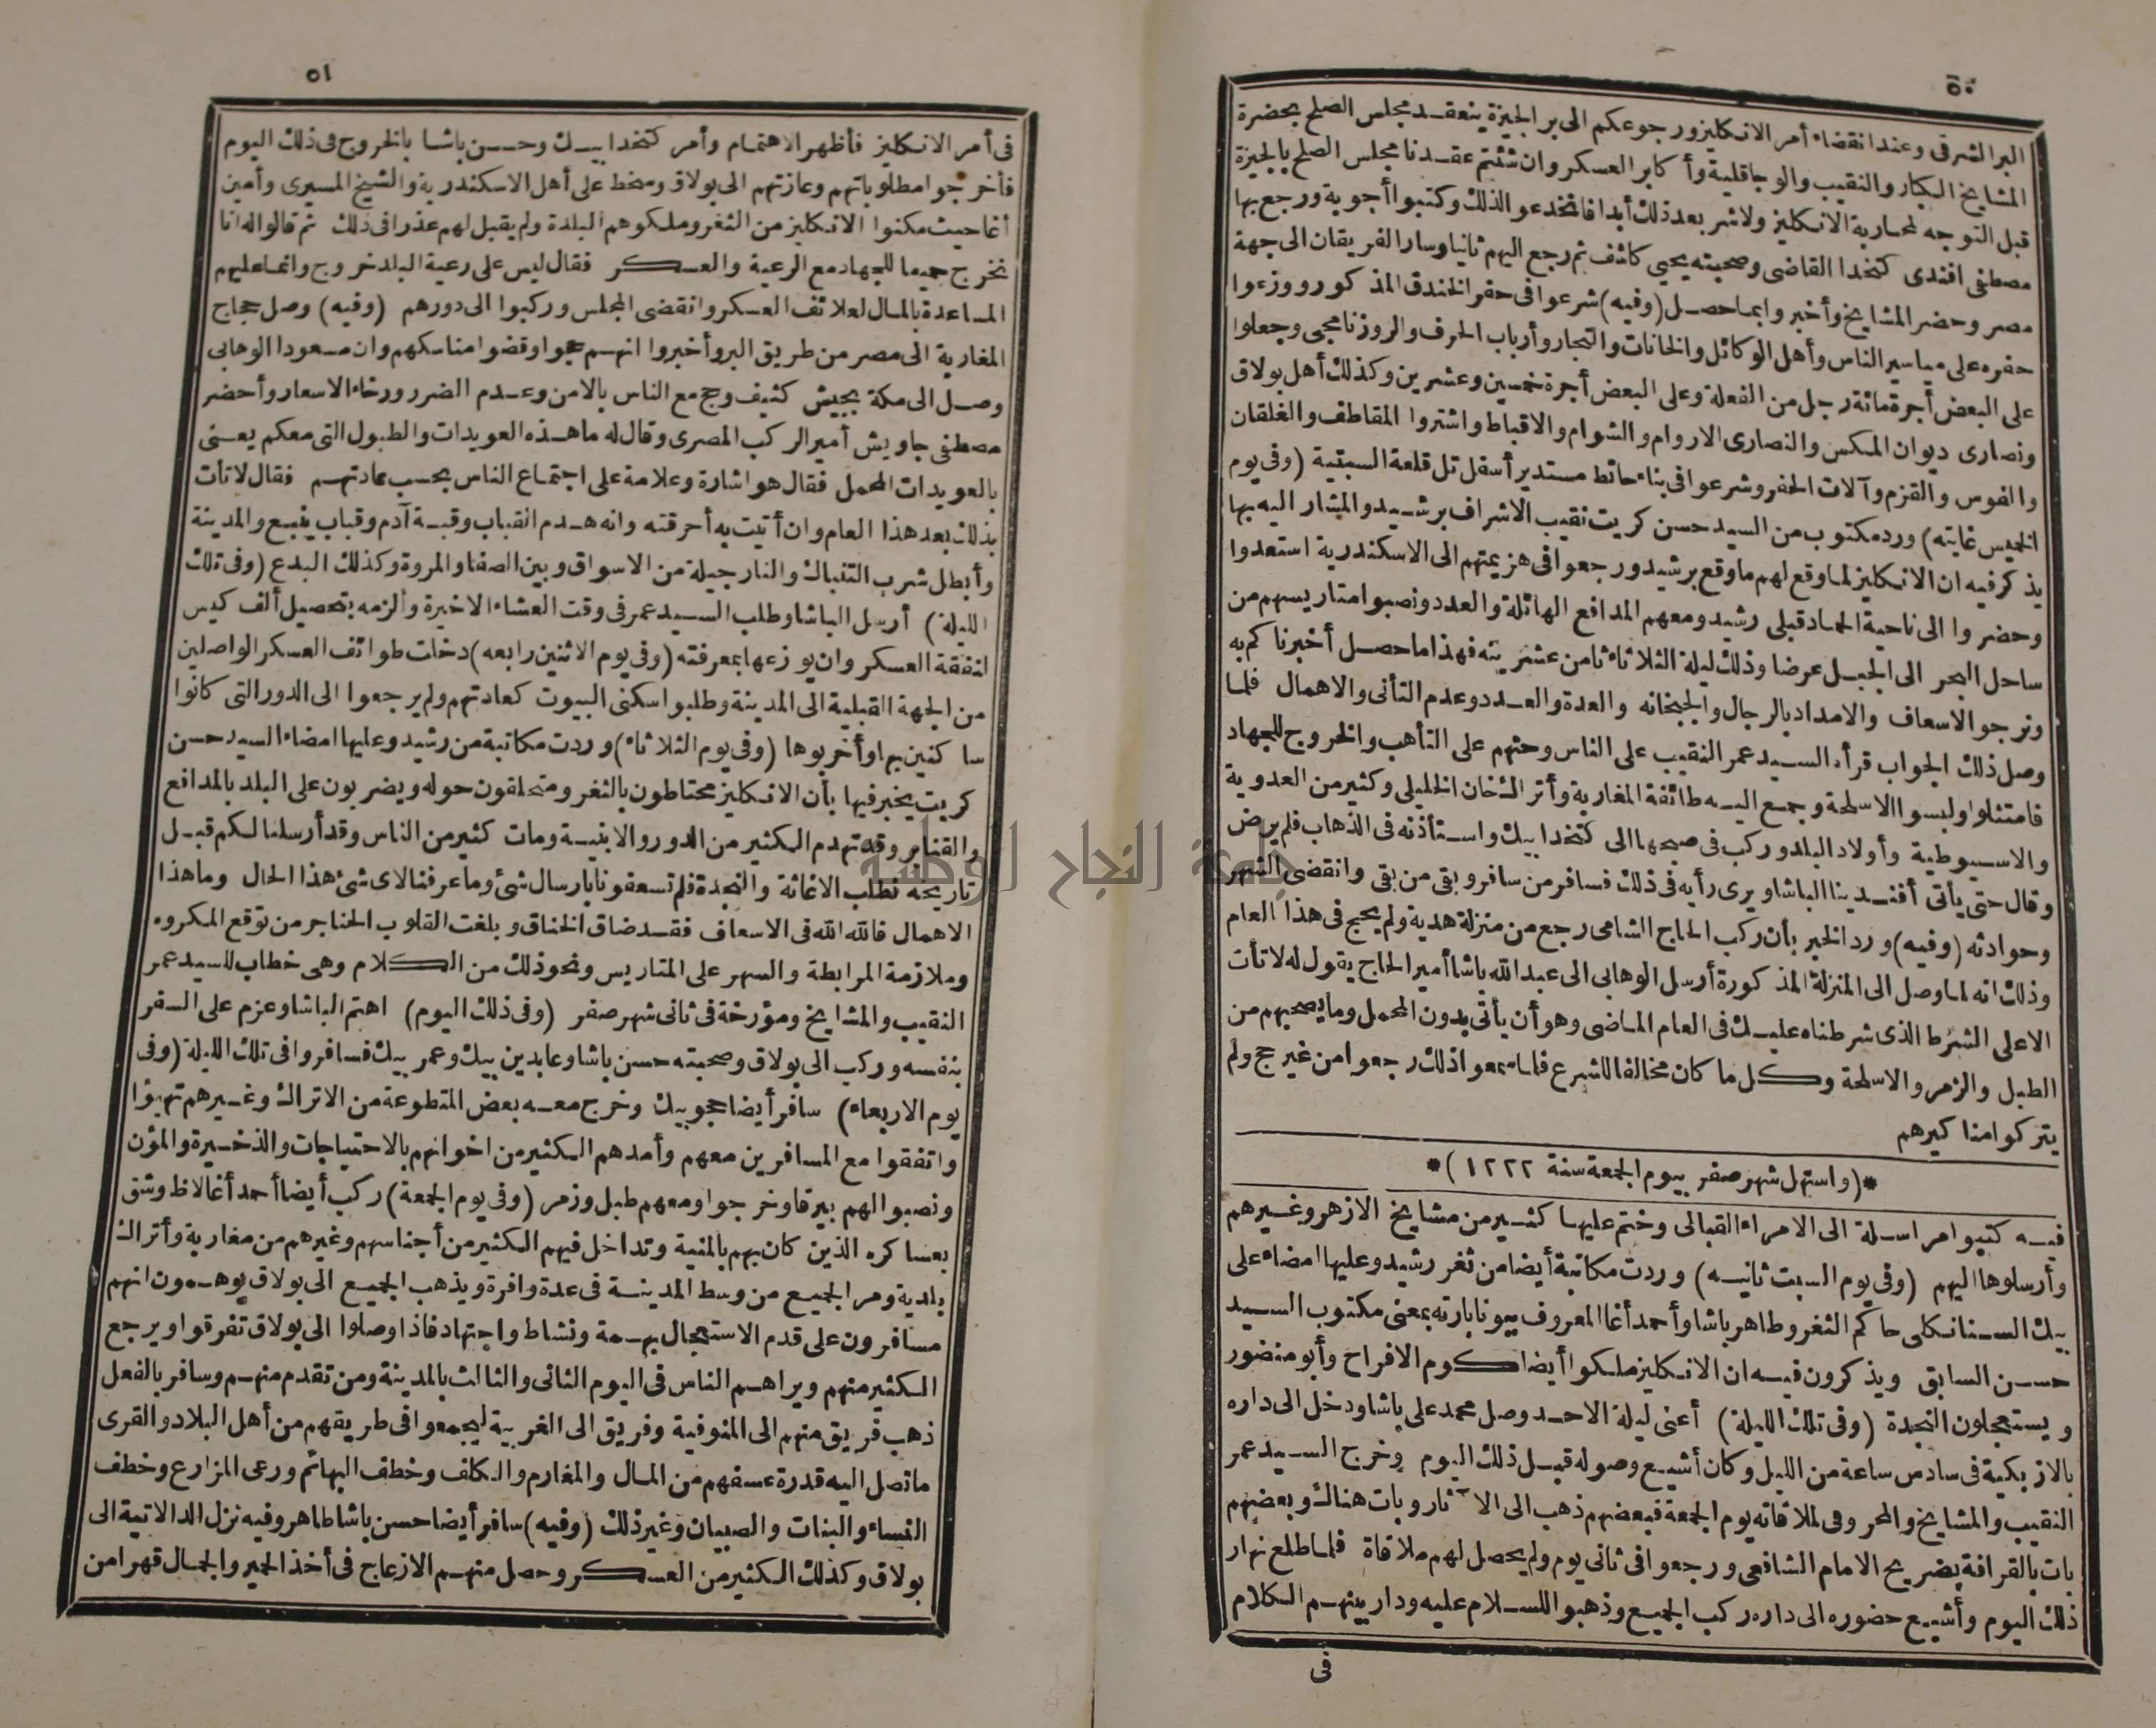 ٥٠
البر الشرقى وعند انقضاء أمر الانكليز ورجوعكم الى بر الجيزة ينعقد مجلس الصلح بحضرة
المشايخ الكبار والنقيب والوجاقلية وأكابر العسكر وان شئتم عقدنا مجلس الصلح بالجيزة
قبل التوجه لمحاربة الانكليز ولا شر بعد ذلك أبدا فانخدعوا لذلك وكتبوا أجوبة ورجع بها
مصطفى افندى كتخدا القاضى وصحبته يحيى كاشف ثم رجع اليهم ثانيا وسار الفريقان الى جهة
مصر وحضر المشايخ وأخبروا بما حصل (وفيه) شرعوا فى حفر الخندق المذكور ووزعوا
حفره على مياسير الناس وأهل الوكائل والخانات والتجار وأرباب الحرف والروزنامجى وجعلوا
على البعض أجرة مائة رجل من الفعلة وعلى البعض أجرة خمسين وعشرين وكذلك أهل بولاق
ونصارى ديوان المكس والنصارى الاروام والشوام والاقباط واشتروا المقاطف والغلقان
والفوس والقزم وآلات الحفر وشرعوا فى بناء حائط مستدير أسفل تل قلعة السبتية (وفى يوم
الخميس غايته) ورد مكتوب من السيد حسن كريت نقيب الاشراف برشيد والمشار اليه بها
يذكر فيه ان الانكليز لما وقع لهم ما وقع برشيد ورجعوا فى هزيمتهم الى الاسكندرية استعدوا
وحضروا الى ناحية الحماد قبلى رشيد ومعهم المدافع الهائلة والعدد ونصبوا متاريسهم من
ساحل البحر الى الجبل عرضا وذلك ليلة الثلاثاء ثامن عشرينه فهذا ما حصل أخبرناكم به
ونرجو الاسعاف والامداد بالرجال والجبخانه والعدة والعدد وعدم التأنى والاهمال فلما
وصل ذلك الجواب قرأه السيد عمر النقيب على الناس وحثهم على التأهب والخروج للجهاد
فامتثلوا ولبسوا الاسلحة وجمع اليه طائفة المغاربة وأتراك خان الخليلى وكثير من العدوية
والاسيوطية وأولاد البلد وركب فى صبحها الى كتخدا بيك واستأذنه فى الذهاب فلم يرض
وقال حتى يأتى أفندينا الباشا ويرى رأيه فى ذلك فسافر من سافر وبقى من بقى وانقضى الشهر
وحوادثه (وفيه) ورد الخبر بأن ركب الحاج الشامى رجع من منزلة هدية ولم يحج فى هذا العام
وذلك انه لما وصل الى المنزلة المذكورة أرسل الوهابى الى عبد الله باشا أمير الحاج يقول له لا تأت
الا على الشرط الذى شرطناه عليك فى العام الماضى وهو أن يأتى بدون المحمل وما يصحبهم من
الطبل والزمر والاسلحة وكل ما كان مخالفا للشرع فلما سمعوا ذلك رجعوا من غير حج ولم
يتركوا مناكيرهم
*(واستهل شهر صفر بيوم الجمعة سنة ١٢٢٢)*
فيه كتبوا مراسلة الى الامراء القبالى وختم عليها كثير من مشايخ الازهر وغيرهم
وأرسلوها اليهم (وفى يوم السبت ثانيه) وردت مكاتبة أيضا من ثغر رشيد وعليها امضاء على
بيك السنانكلى حاكم الثغر وطاهر باشا وأحمد أغا المعروف ببونابارته بمعنى مكتوب السيد
حسن السابق ويذكرون فيه ان الانكليز ملكوا أيضا كوم الافراح وأبو منضور
ويستعجلون النجدة (وفى تلك الليلة) أعنى ليلة الاحد وصل محمد على باشا ودخل الى داره
بالازبكية فى سادس ساعة من الليل وكان أشيع وصوله قبل ذلك اليوم وخرج السيد عمر
النقيب والمشايخ والمحروقى لملاقاته يوم الجمعة فبعضهم ذهب الى الآثار وبات هناك وبعضهم
بات بالقرافة بضريح الامام الشافعى ورجعوا فى ثانى يوم ولم يحصل لهم ملاقاة فلما طلع نهار
ذلك اليوم وأشيع حضوره الى داره ركب الجميع وذهبوا للسلام عليه ودار بينهم الكلام
فى
٥١
فى أمر الانكليز فأظهر الاهتمام وأمر كتخدا بيك وحسن باشا بالخروج فى ذلك اليوم
فأخرجوا مطلوباتهم وعازتهم الى بولاق وسخط على أهل الاسكندرية والشيخ المسيرى وأمين
أغا حيث مكنوا الانكليز من الثغر وملكوهم البلدة ولم يقبل لهم عذرا فى ذلك ثم قالوا له انا
نخرج جميعا للجهاد مع الرعية والعسكر فقال ليس على رعية البلد خروج وانما عليهم
المساعدة بالمال لعلائف العسكر وانقضى المجلس وركبوا الى دورهم (وفيه) وصل حجاج
المغاربة الى مصر من طريق البر وأخبروا انهم حجوا وقضوا مناسكهم وان مسعودا الوهابى
وصل الى مكة بجيش كثيف وحج مع الناس بالامن وعدم الضرر ورخاء الاسعار وأحضر
مصطفى جاويش أمير الركب المصرى وقال له ما هذه العويدات والطبول التى معكم يعنى
بالعويدات المحمل فقال هو اشارة وعلامة على اجتماع الناس بحسب عادتهم فقال لا تأت
بذلك بعد هذا العام وان أتيت به أحرقته وانه هدم القباب وقبة آدم وقباب ينبع والمدينة
وأبطل شرب التنباك والنارجيلة من الاسواق وبين الصفا والمروة وكذلك البدع (وفى تلك
الليلة) أرسل الباشا وطلب السيد عمر فى وقت العشاء الاخيرة وألزمه بتحصيل ألف كيس
لنفقة العسكر وان يوزعها بمعرفته (وفى يوم الاثنين رابعه) دخلت طوائف العسكر الواصلين
من الجهة القبلية الى المدينة وطلبوا سكنى البيوت كعادتهم ولم يرجعوا الى الدور التى كانوا
ساكنين بها وأخربوها (وفى يوم الثلاثاء) وردت مكاتبة من رشيد وعليها امضاء السيد حسن
كريت يخبر فيها بأن الانكليز محتاطون بالثغر ومتحلقون حوله ويضربون على البلد بالمدافع
والقنابر وقد تهدم الكثير من الدور والابنية ومات كثير من الناس وقد أرسلنا لكم قبل
تاريخه نطلب الاغاثة والنجدة فلم تسعفونا بارسال شئ وما عرفنا لاى شئ هذا الحال وما هذا
الاهمال فالله الله فى الاسعاف فقد ضاق الخناق وبلغت القلوب الحناجر من توقع المكروه
وملازمة المرابطة والسهر على المتاريس ونحو ذلك من الكلام وهى خطاب للسيد عمر
النقيب والمشايخ ومؤرخة فى ثانى شهر صفر (وفى ذلك اليوم) اهتم الباشا وعزم على السفر
بنفسه وركب الى بولاق وصحبته حسن باشا وعابدين بيك وعمر بيك فسافروا فى تلك الليلة (وفى
يوم الاربعاء) سافر أيضا حجو بيك وخرج معه بعض المتطوعة من الاتراك وغيرهم تهيؤا
واتفقوا مع المسافرين معهم وأمدهم الكثير من اخوانهم بالاحتياجات والذخيرة والمؤن
ونصبوا لهم بيرقا وخرجوا ومعهم طبل وزمر (وفى يوم الجمعة) ركب أيضا أحمد أغا لاظ وشق
بعساكره الذين كان بهم بالمنية وتداخل فيهم الكثير من أجناسهم وغيرهم من مغاربة وأتراك
بلدية ومر الجميع من وسط المدينة فى عدة وافرة ويذهب الجميع الى بولاق يوهمون انهم
مسافرون على قدم الاستعجال بهمة ونشاط واجتهاد فاذا وصلوا الى بولاق تفرقوا ويرجع
الكثير منهم ويراهم الناس فى اليوم الثانى والثالث بالمدينة ومن تقدم منهم وسافر بالفعل
ذهب فريق منهم الى المنوفية وفريق الى الغربية ليجمعوا فى طريقهم من أهل البلاد والقرى
ما تصل اليه قدرة عسفهم من المال والمغارم والكلف وخطف البهائم ورعى المزارع وخطف
النساء والبنات والصبيان وغير ذلك (وفيه) سافر أيضا حسن باشا طاهر وفيه نزل الدالاتية الى
بولاق وكذلك الكثير من العسكر وحصل منهم الازعاج فى أخذ الحمير والجمال قهرا من
جامعة النجاح الوطنية